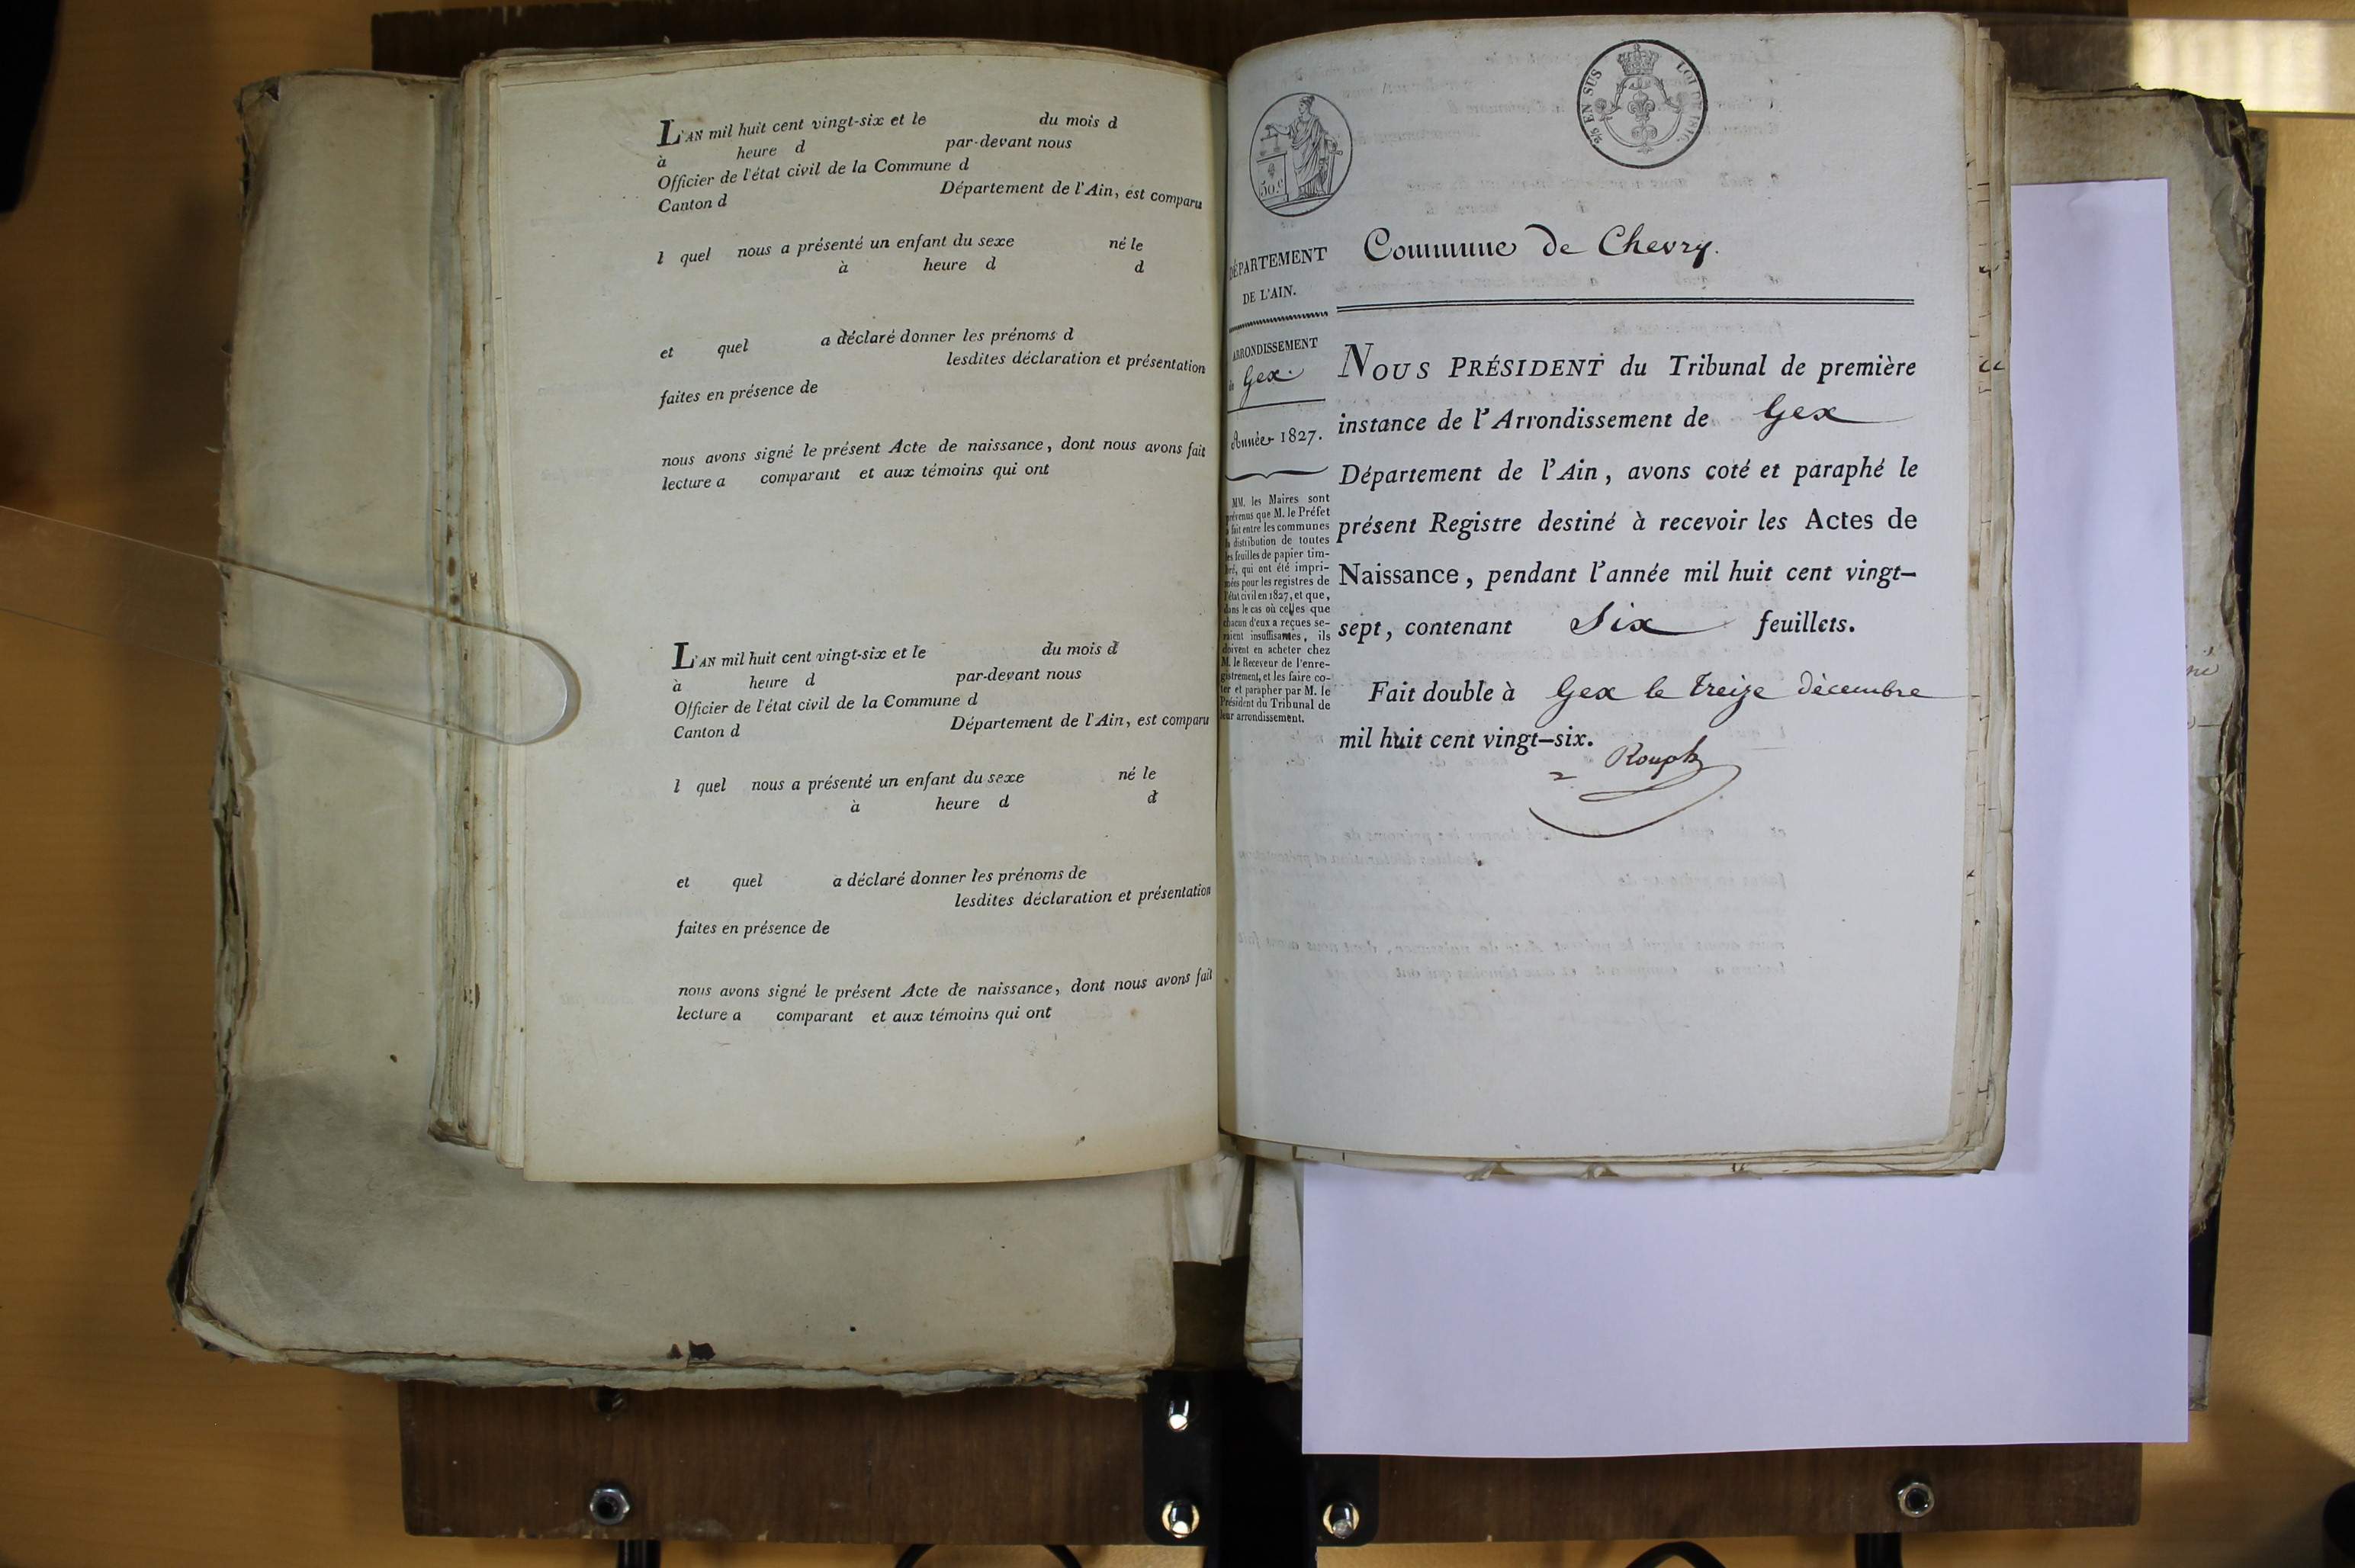 L'AN mil huit cent vingt-six et le du mois d
à heure d par-devant nous
Officier de l'état civil de la Commune d
Canton d Département de l'Ain, est comparu
l quel nous a présenté un enfant du sexe né le
à heure d d
et quel a déclaré donner les prénoms d
lesdites déclaration et présentation
faites en présence de
nous avons signé le présent Acte de naissance, dont nous avons fait
lecture a comparant et aux témoins qui ont
L'AN mil huit cent vingt-six et le du mois d
à heure d par-devant nous
Officier de l'état civil de la Commune d
Canton d Département de l'Ain, est comparu
l quel nous a présenté un enfant du sexe né le
à heure d d
et quel a déclaré donner les prénoms de
lesdites déclaration et présentation
faites en présence de
nous avons signé le présent Acte de naissance, dont nous avons fait
lecture a comparant et aux témoins qui ont
50.c
EN SUS LOI DE 1816.
DÉPARTEMENT
DE L'AIN.
ARRONDISSEMENT
de Gex.
Année 1827.
MM. les Maires sont
prévenus que M. le Préfet
a fait entre les communes
la distribution de toutes
les feuilles de papier tim-
bré, qui ont été impri-
mées pour les registres de
l'état civil en 1827, et que,
dans le cas où celles que
chacun d'eux a reçues se-
raient insuffisantes, ils
doivent en acheter chez
M. le Receveur de l'enre-
gistrement, et les faire co-
ter et parapher par M. le
Président du Tribunal de
leur arrondissement.
Commune de Chevry.
NOUS PRÉSIDENT du Tribunal de première
instance de l'Arrondissement de Gex
Département de l'Ain, avons coté et paraphé le
présent Registre destiné à recevoir les Actes de
Naissance, pendant l'année mil huit cent vingt-
sept, contenant Six feuillets.
Fait double à Gex le treize décembre
mil huit cent vingt-six.
Rouph